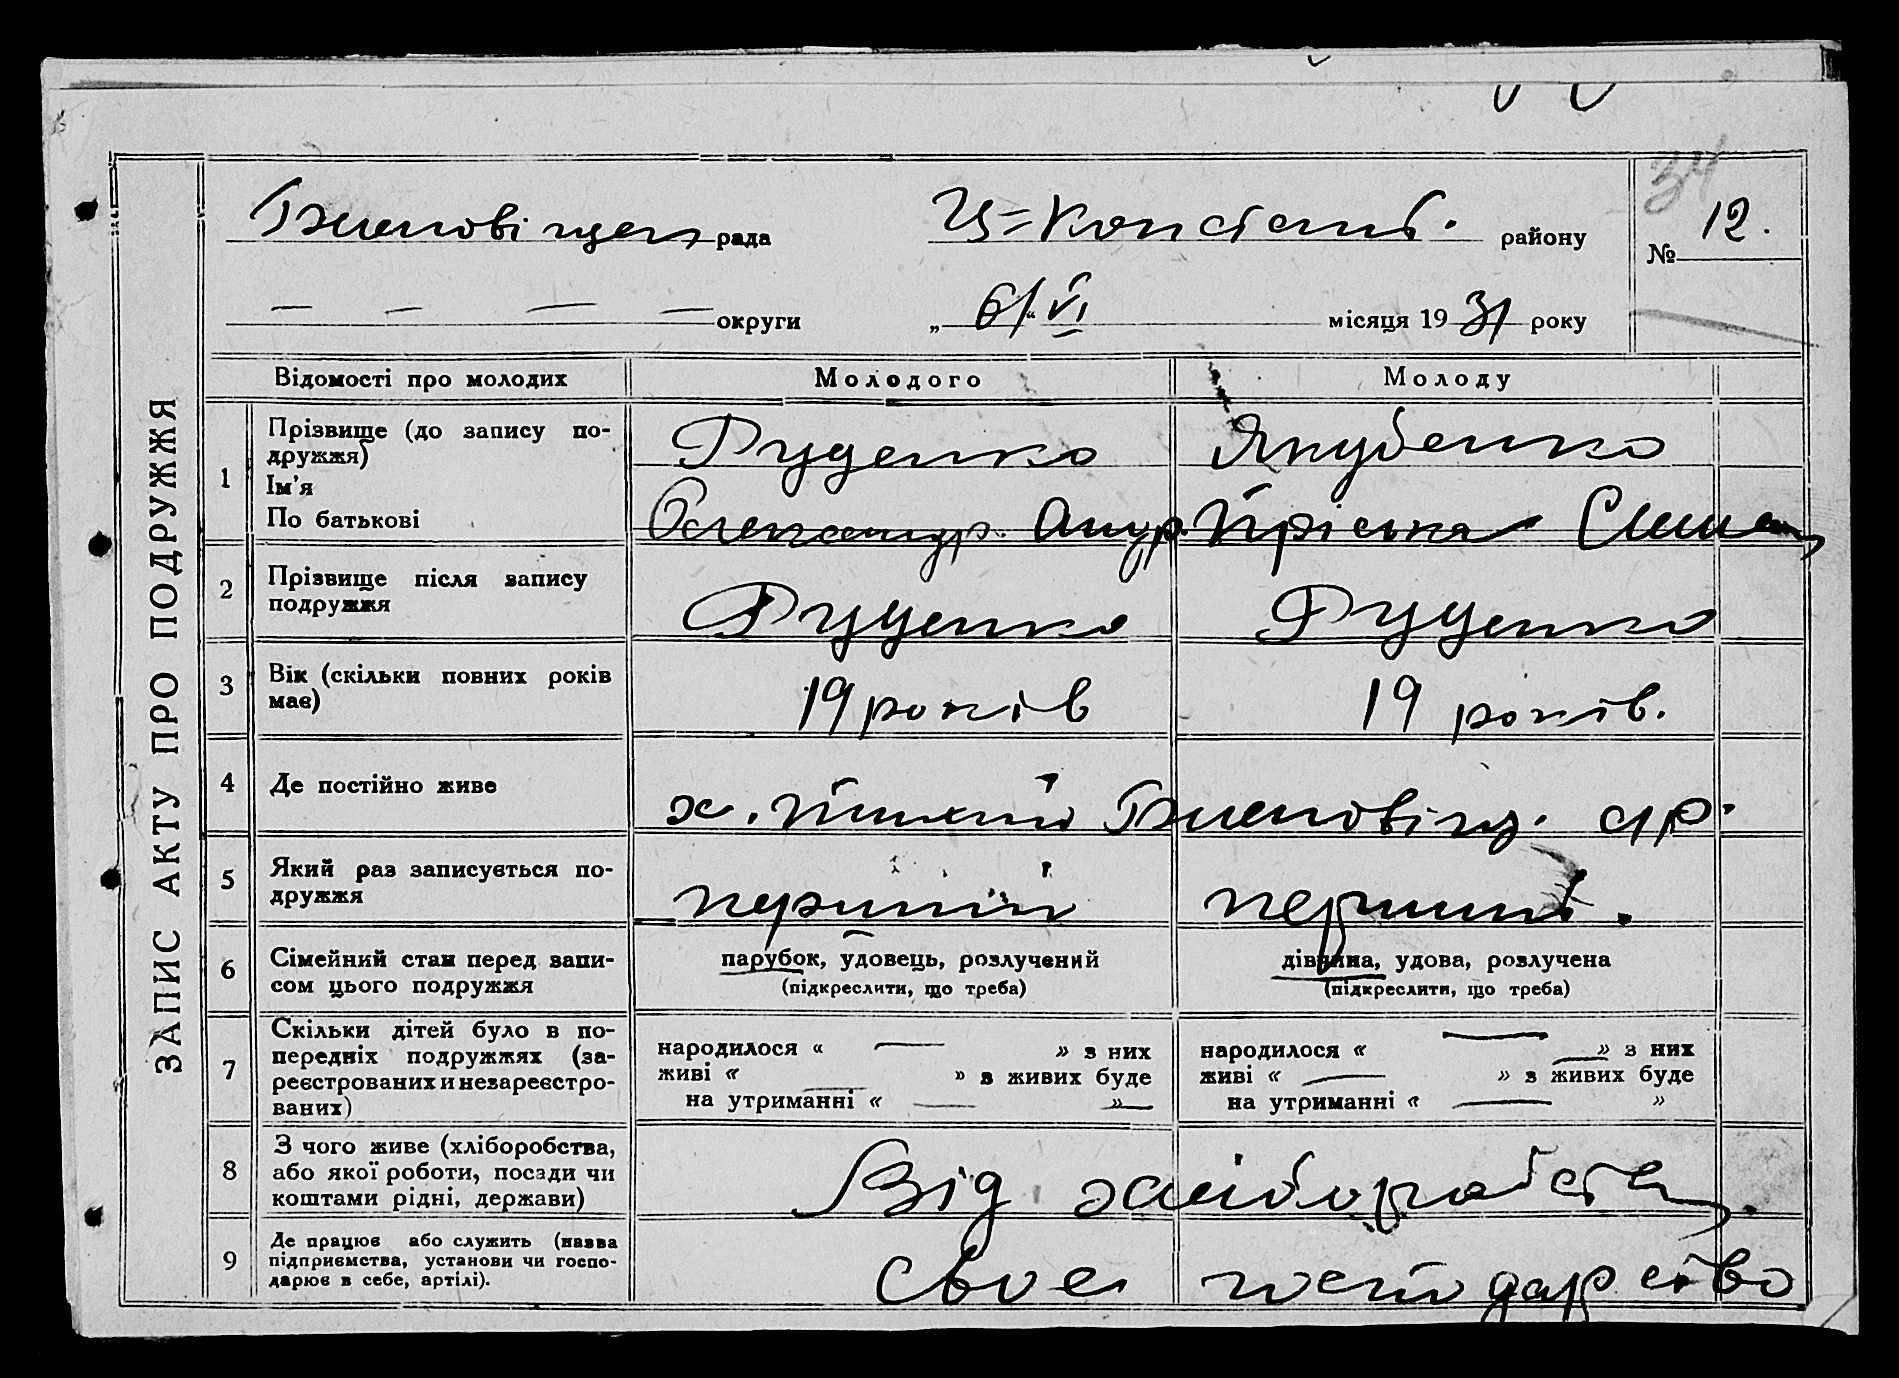 34
рада
Ц=Констант. району
№ 12.
округи
„ 6/“ VI місяця 1931 року
ЗАПИС АКТУ ПРО ПОДРУЖЖЯ
Відомості про молодих
Молодого
Молоду
1
Прізвище (до запису по-
дружжя)
Ім'я
По батькові
Руденко
Якубенко
Олександр. Андр. Пріська Семен
2
Прізвище після запису
подружжя
Руденко
Руденко
3
Вік (скільки повних років
має)
19 років
19 років.
4
Де постійно живе
х. с/р.
5
Який раз записується по-
дружжя
перший
перший.
6
Сімейний стан перед запи-
сом цього подружжя
парубок, удовець, розлучений
(підкреслити, що треба)
дівчина, удова, розлучена
(підкреслити, що треба)
7
Скільки дітей було в по-
передніх подружжях (за-
реєстрованих и незареєстро-
ваних)
народилося « — » з них
живі « — » з живих буде
на утриманні « — »
народилося « — » з них
живі « — » з живих буде
на утриманні « — »
8
З чого живе (хліборобства,
або якої роботи, посади чи
коштами рідні, держави)
Від хліборобств.
9
Де працює або служить (назва
підприємства, установи чи госпо-
дарює в себе, артілі).
Своє господарство